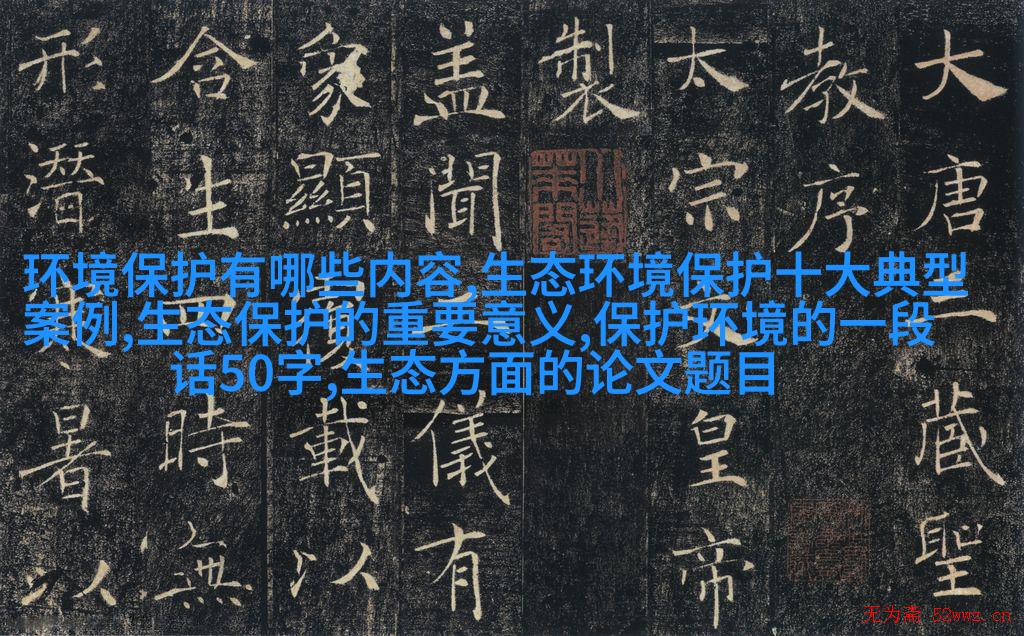 大唐三藏聖
教序
太宗文皇帝
製
盖聞二儀有
象顯載以
含生四時無
形潛寒暑以
环境保护有哪些内容,生态环境保护十大典型
案例,生态保护的重要意义,保护环境的一段
话50字,生态方面的论文题目
无为斋 52wwz.cn